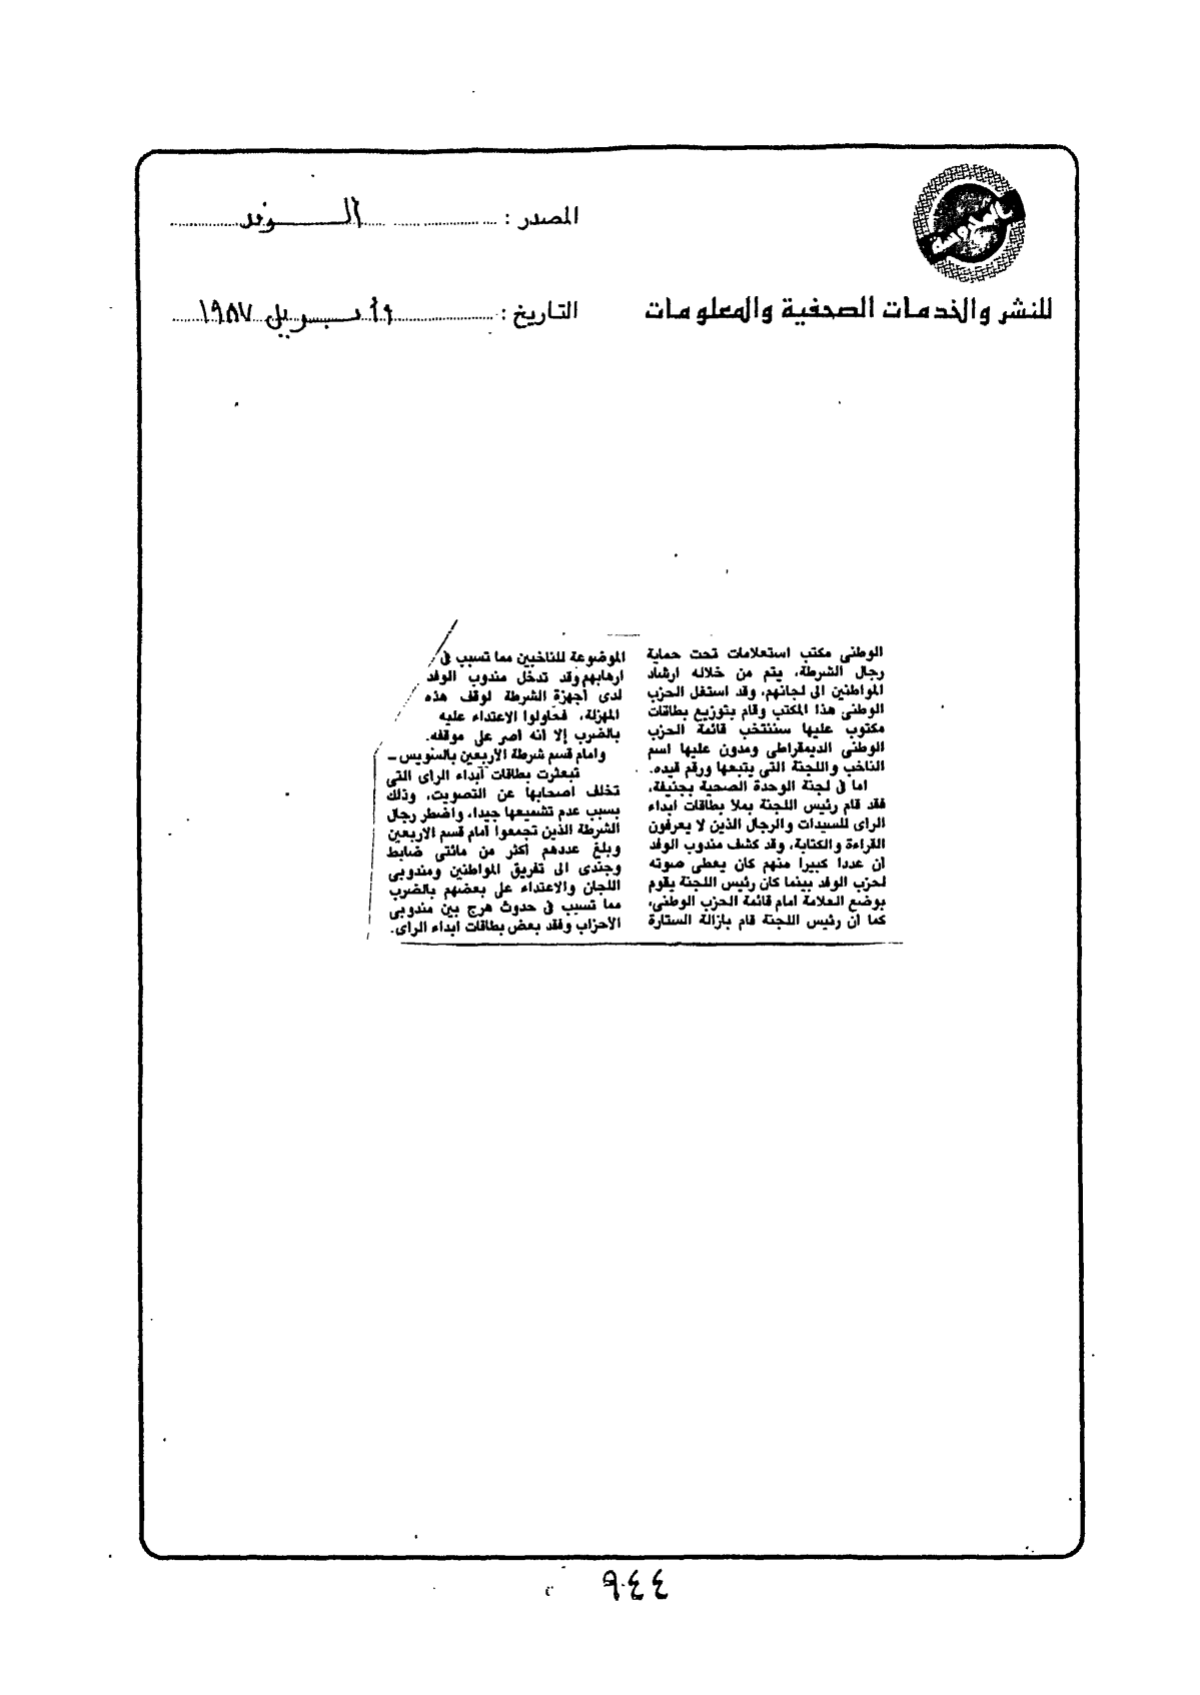 المحروسة
للنشر والخدمات الصحفية والمعلومات
المصدر : الوفد
التاريخ : ٩ أبريل ١٩٨٧
الوطنى مكتب استعلامات تحت حماية
رجال الشرطة، يتم من خلاله ارشاد
المواطنين الى لجانهم، وقد استغل الحزب
الوطنى هذا المكتب وقام بتوزيع بطاقات
مكتوب عليها سننتخب قائمة الحزب
الوطنى الديمقراطى ومدون عليها اسم
الناخب واللجنة التى يتبعها ورقم قيده.
اما فى لجنة الوحدة الصحية بجنيفة،
فقد قام رئيس اللجنة بملا بطاقات ابداء
الراى للسيدات والرجال الذين لا يعرفون
القراءة والكتابة، وقد كشف مندوب الوفد
ان عددا كبيرا منهم كان يعطى صوته
لحزب الوفد بينما كان رئيس اللجنة يقوم
بوضع العلامة امام قائمة الحزب الوطنى،
كما ان رئيس اللجنة قام بازالة الستارة
الموضوعة للناخبين مما تسبب فى
ارهابهم وقد تدخل مندوب الوفد
لدى أجهزة الشرطة لوقف هذه
المهزلة، فحاولوا الاعتداء عليه
بالضرب إلا انه اصر على موقفه.
وامام قسم شرطة الاربعين بالسويس -
تبعثرت بطاقات ابداء الراى التى
تخلف اصحابها عن التصويت، وذلك
بسبب عدم تشميعها جيدا، واضطر رجال
الشرطة الذين تجمعوا أمام قسم الاربعين
وبلغ عددهم أكثر من مائتى ضابط
وجندى الى تفريق المواطنين ومندوبى
اللجان والاعتداء على بعضهم بالضرب
مما تسبب فى حدوث هرج بين مندوبى
الأحزاب وفقد بعض بطاقات ابداء الراى.
٩٤٤